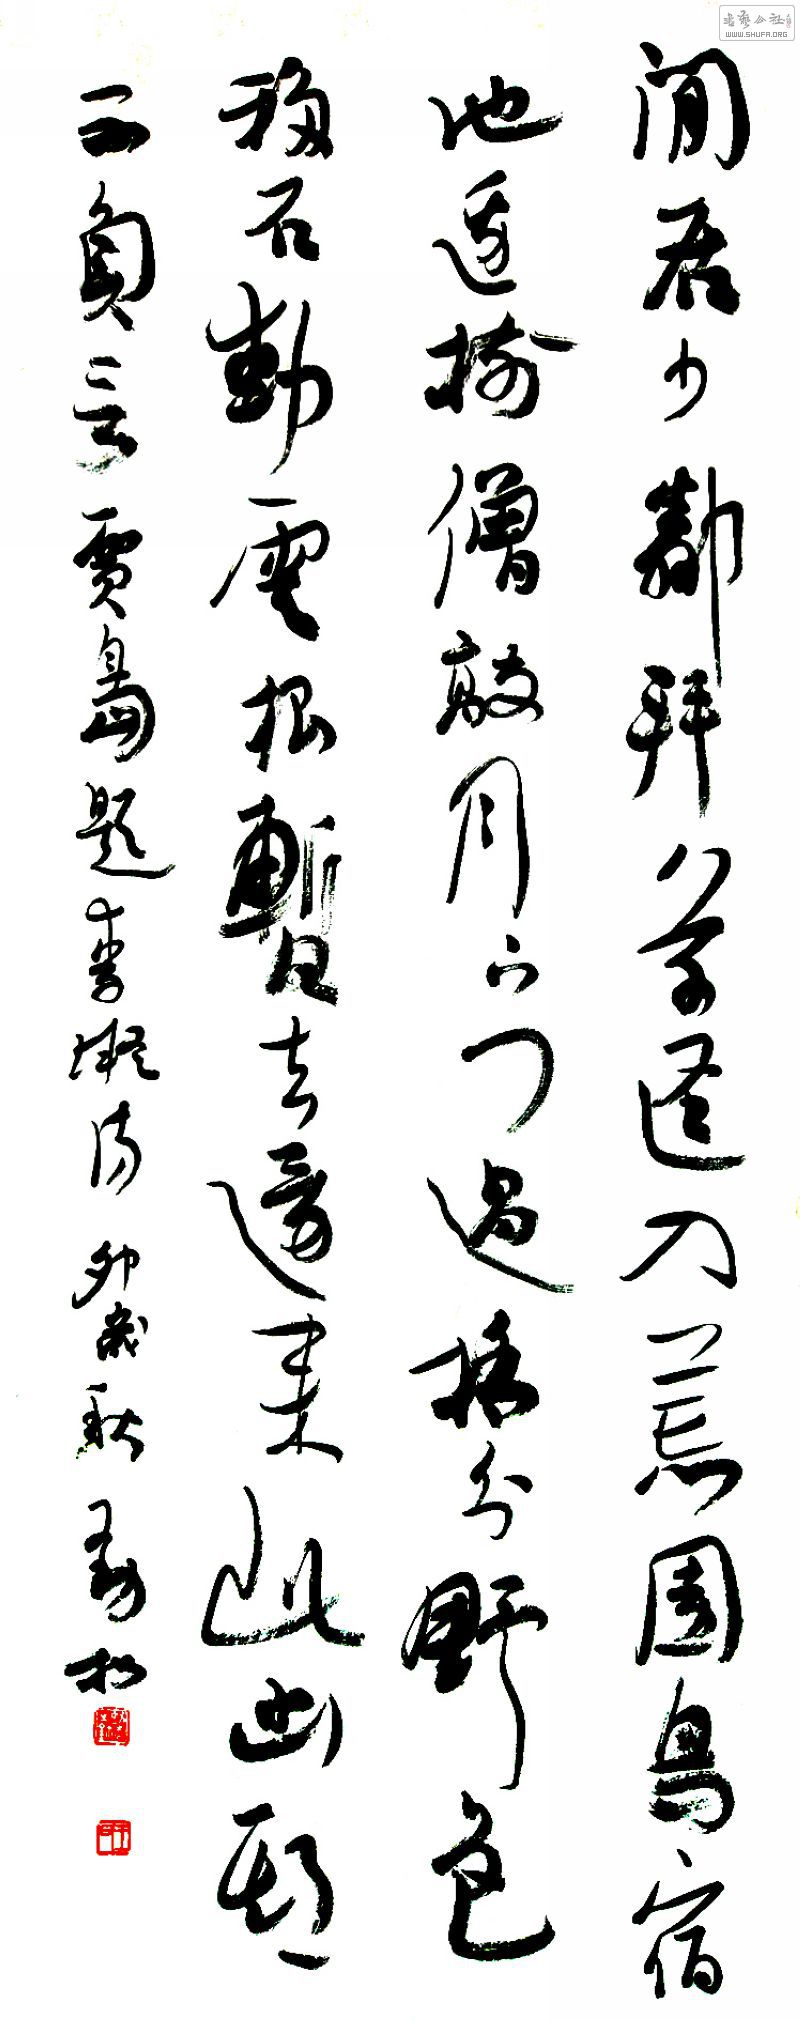 閒居少鄰併草徑入荒園鳥宿
池邊樹僧敲月下門過橋分野色
移石動雲根暫去還來此幽期
不負言賈島題李凝詩 卯歲秋 松
書藝公社
WWW.SHUFA.ORG